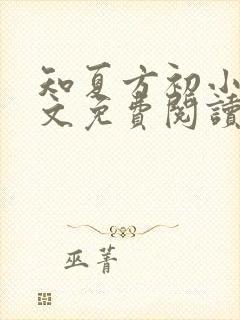 知夏方初小
文免費閱讀
巫菁